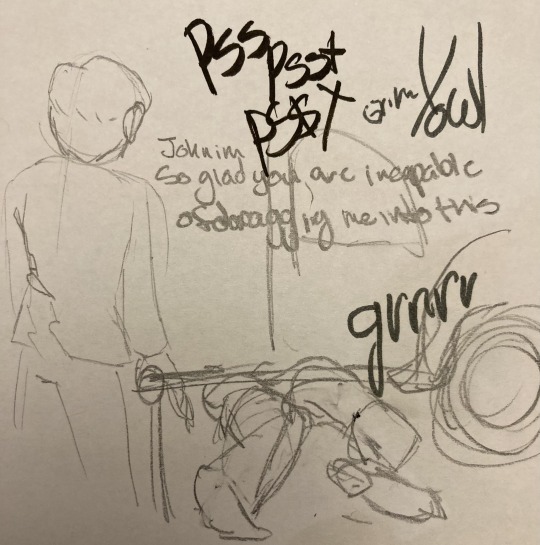 pss
psst
psst
Grim Yowl
Johnim
So glad you are incapable
of dragging me into this
grrrrr